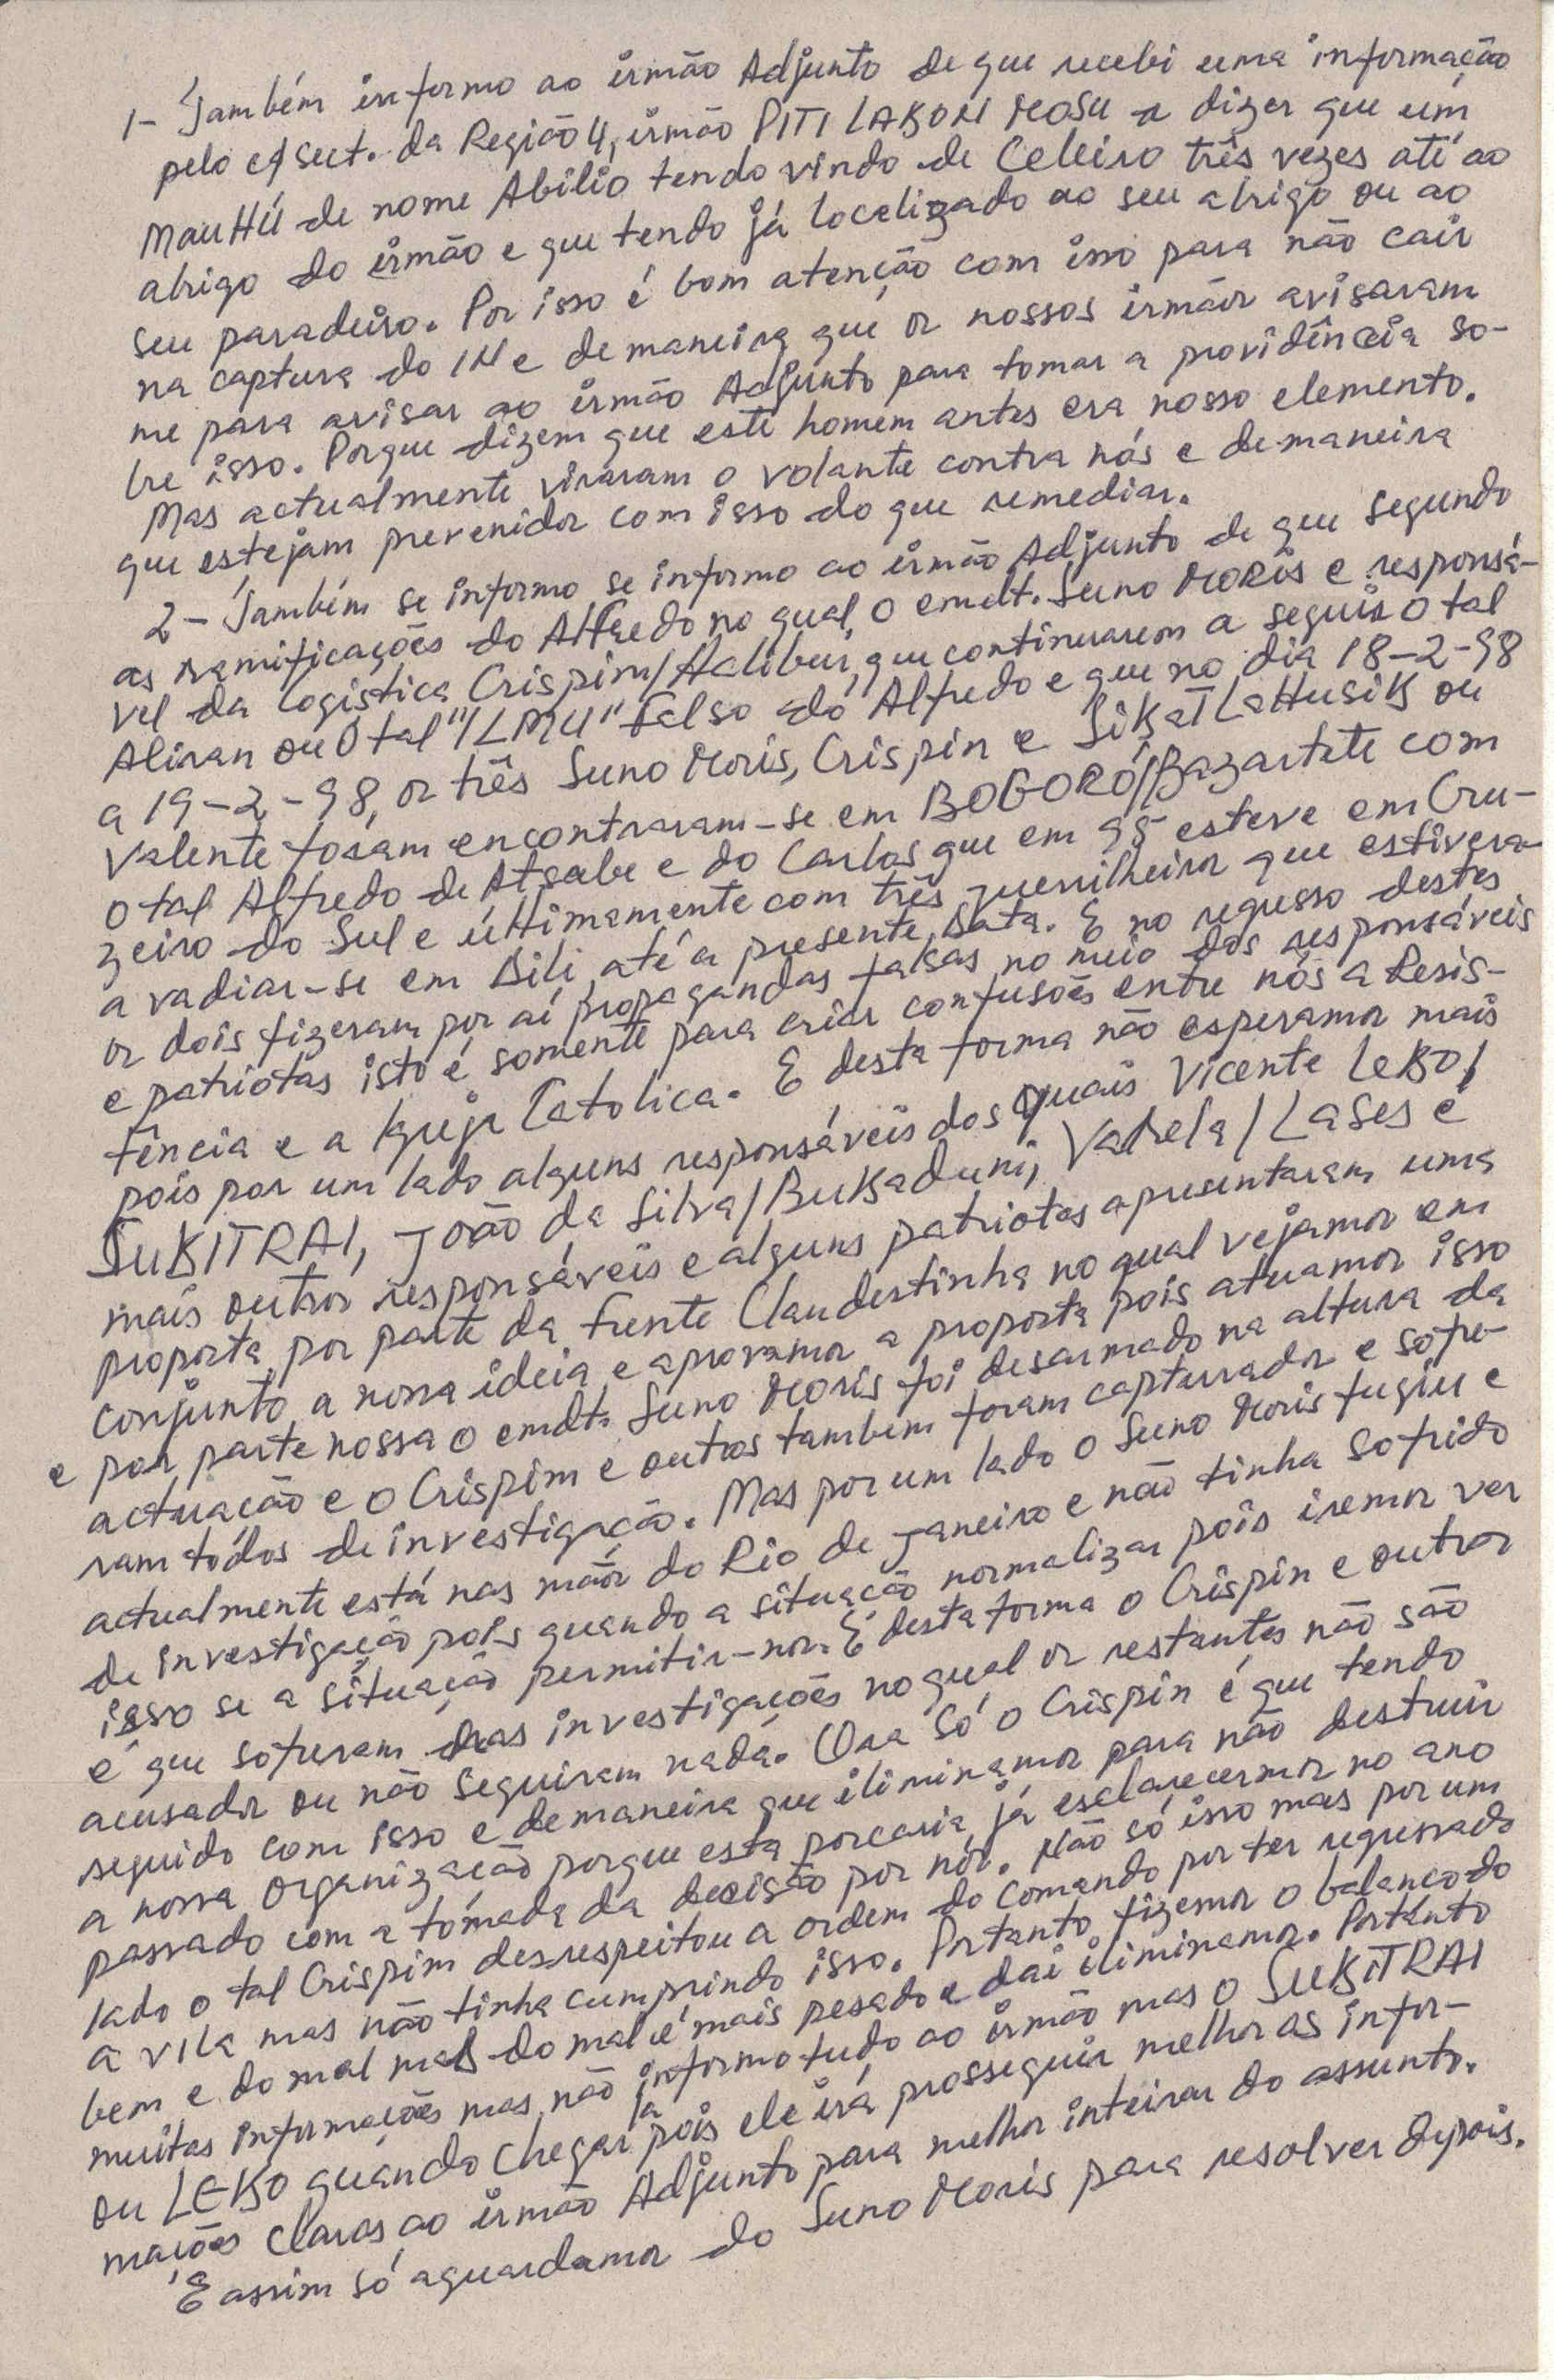 1- Também informo ao irmão Adjunto de que recebi uma informação
pelo c/sect. da Região 4, irmão PITI LABON MOSU a dizer que um
MauHú de nome Abílio tendo vindo de Celeiro três vezes até ao
abrigo do irmão e que tendo já localizado ao seu abrigo ou ao
seu paradeiro. Por isso é bom atenção com isso para não cair
na captura do INe de maneira que os nossos irmãos avisaram
me para avisar ao irmão Adjunto para tomar a providência so-
bre isso. Porque dizem que este homem antes era nosso elemento.
Mas actualmente viraram o volante contra nós e de maneira
que estejam prevenidos com isso do que remediar.
2- Também se informo se informo ao irmão Adjunto de que segundo
as ramificações do Alfredo no qual, o cmdt. Suno Moris e responsá-
vel da logística Crispim/Halibur, que continuarem a seguir o tal
Aliran ou O tal "ILMU" falso do Alfredo e que no dia 18-2-98
a 19-2-98, os três Suno Moris, Crispin e SiKaT LaHusiK ou
Valente foram encontraram-se em BOGORÓ/Bazartete com
o tal Alfredo de Atsabe e do Carlos que em 95 esteve em Cru-
zeiro do Sul e últimamente com três guerrilheiros que estivera-
a vadiar-se em Dili até a presente, data. E no regresso destes
os dois fizeram por aí propagandas falsas no meio dos responsáveis
e patriotas isto é somente para criar confusões entre nós a Resis-
tência e a Igreja Catolica. E desta forma não esperamos mais
pois por um lado alguns responsáveis dos quais Vicente LeKO/
SuKITRAI, João da Silva/BuKaduni, Varela/Lases e
mais outros responsáveis e alguns patriotas apresentaram uma
proposta por parte da Frente Clandestinha no qual vejamos em
conjunto a nossa ideia e aprovamos a proposta pois atuamos isso
e por parte nossa o cmdt. Suno Moris foi desarmado na altura da
actuação e o Crispim e outros também foram capturados e sofre-
ram todos de investigação. Mas por um lado o Suno Moris fugiu e
actualmente está nas mãos do Rio de Janeiro e não tinha sofrido
de investigação pois quando a situação normalizar pois iremos ver
isso se a situação permitir-nos. E desta forma o Crispin e outros
é que sofreram das investigações no qual os restantes não são
acusados ou não seguiram nada. Ora só o Crispin é que tendo
seguido com isso e de maneira que iliminamos para não destruir
a nossa organização porque esta porcaria já esclarecermos no ano
passado com a tómada da decisão por nós. Não só isso mas por um
lado o tal Crispim desrespeitou a ordem do Comando por ter regressado
a vila mas não tinha cumprindo isso. Portanto fizemos o balanco do
bem e do mal mas do mal é mais pesado e dai iliminamos. Portanto
muitas informações mas não informo tudo ao irmão mas o SUKITRAI
ou LEKO quando chegar lá pois ele irá prosseguir melhor as infor-
mações claras ao irmão Adjunto para melhor inteirar do assunto.
E assim só aguardamos do Suno Moris para resolver depois.